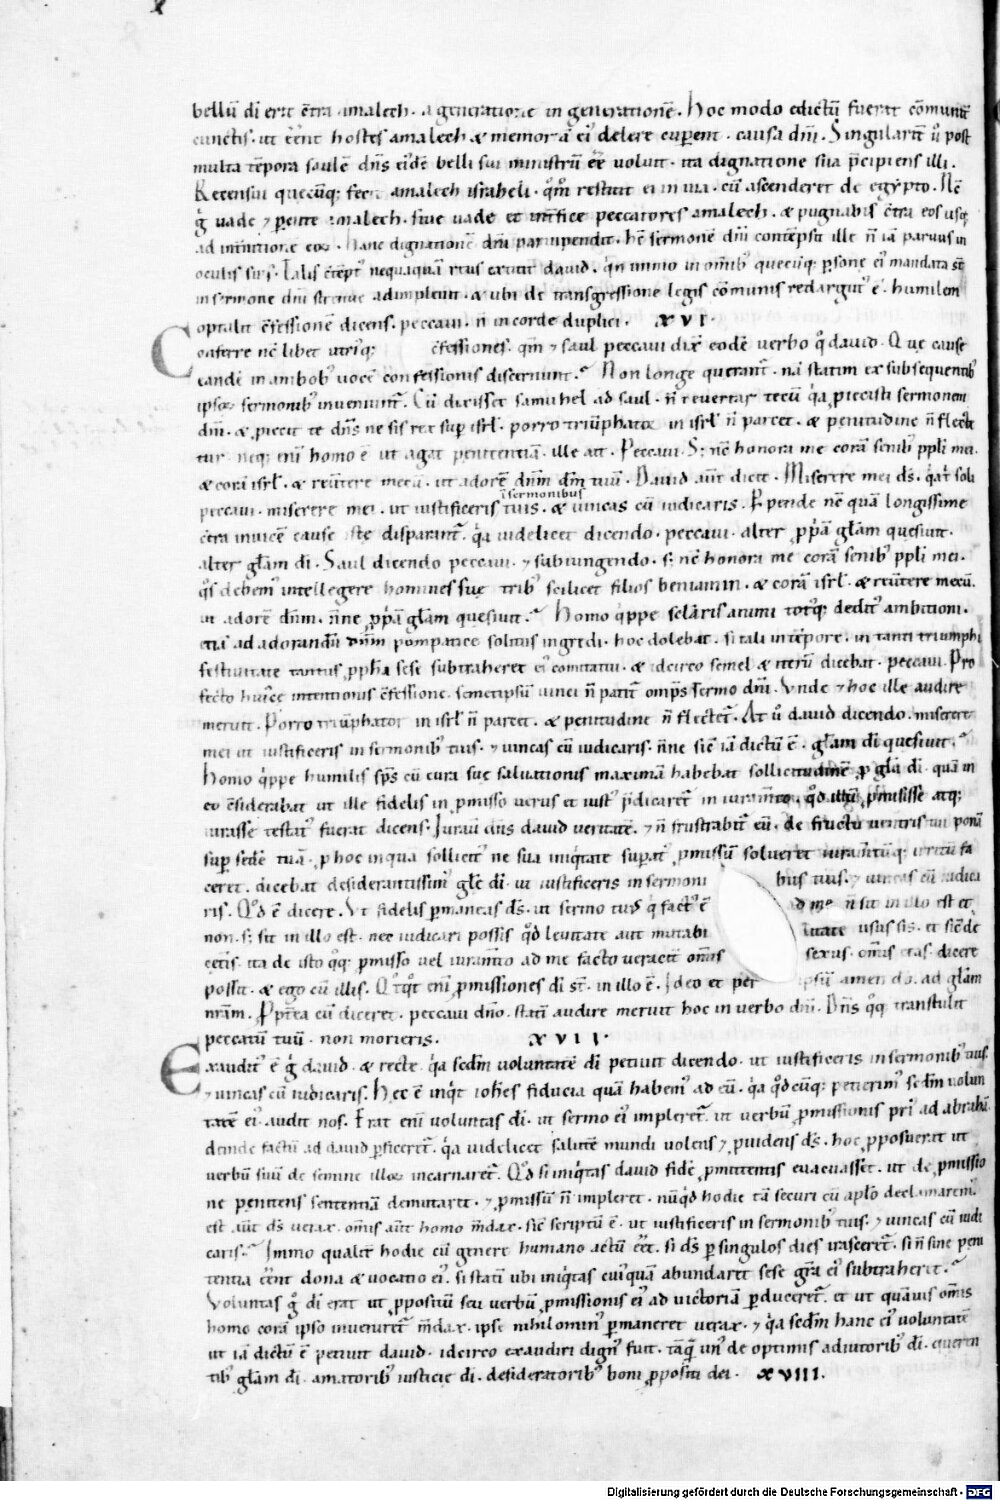 bellū dī erit ꝯtra amalech · a generatione in generationē · Hoc modo edictū fuerat cōmunit̄
cunctis · ut eēnt hostes amalech & memoriā ei᾽ delere cuperent · causa dn̄i · Singularit̄ ū post
multa tēpora saulē dn̄s eiꝰdē belli sui ministrū eē voluit · ita dignatione sua p̄cipiens illi ·
Recensui quecūq; fecit amalech israheli · qm̊o restitit ei in via · cū ascenderet de egypto · Nc̄
g̊ vade ⁊ percute amalech · siue vade et int̄fice peccatores amalech · & pugnabis ꝯtra eos usq;
ad int̄nitione eoꝝ · Hanc dignationē dn̄i paruipendit · hē sermonē dn̄i contēpsit ille n̄ iā paruus in
oculis suis · Talis ꝯtēpt᾽ nequaquā reus extitit dauid · qn̄ immo in om̄ib᾽ quecūq; psone ei᾽ mandata st̄
in sermone dn̄i strenue adimpleuit · & ubi de transgressione legis cōmunis redargut᾽ ē · humilem
optulit ꝯfessionē dicens · peccaui · n̄ in corde duplici · XVI ·
Conferre nc̄ libet utriq; ꝯfessiones · qm̄ ⁊ saul peccaui dix̄ eodē verbo q̊ dauid · Que cause
eandē in ambob᾽ vocē confessionis discernunt · Non longe querant᾽ · nā statim ex subsequentib᾽
ipsoꝝ sermonib᾽ inueniunt᾽ · Cū dixisset samuhel ad saul · n̄ reuertar tecū qa proiecisti sermonem
dn̄i · & proiecit te dn̄s ne sis rex sup isrl̄ · porro triūphator in isrl̄ n̄ parcet · & penitudine n̄ flecte
tur neq; eni homo ē ut agat penitentiā · ille ait · Peccaui · S; nc̄ honora me corā senib᾽ ppli mei ·
& corā isrl̄ · & reūtere mecū · ut adorē dn̄m dm̄ tuū · Dauid aūt dicit · Miserere mei ds̄ · qa t᾽ soli
ī sermonibus
peccaui · miserere mei · ut iustificeris tuis · & uincas cū iudicaris · Ppende nc̄ quā longissime
ꝯtra inuicē cause iste disparant᾽ · qa uidelicet dicendo · peccaui · alter ꝓpā gl̄am quesiuit ·
alter gl̄am dī · Saul dicendo peccaui · ⁊ subiungendo · s; nc̄ honora me corā senib᾽ ppli mei ·
q̊s debem᾽ intellegere homines suę trib᾽ scilicet filios beniamin · & corā isrl̄ · & reūtere mecū ·
ut adorē dn̄m · n̄ne ꝓpā gl̄am quesiuit · Homo q̊ppe seclaris animi totꝰq; dedit᾽ ambitioni ·
etiā ad adorandū dn̄m pompatice solitus ingredi · hoc dolebat · si tali in tēpore · in tanti triumphi
festiuitate tantus ꝓpha sese subtraheret ei᾽ comitatui · & idcirco semel & iterū dicebat · peccaui · Pro
fecto huiꝰce intentionis ꝯfessione · semetipsū uinci n̄ patit᾽ omps̄ sermo dn̄i · Vnde ⁊ hoc ille audire
meruit · Porro triūphator in isrl̄ n̄ parcet · & penitudine n̄ flectet᾽ · At ū dauid dicendo · miserere
mei ut iustificeris in sermonib᾽ tuis · ⁊ uincas cū iudicaris · n̄ne sic iā dictū ē · gl̄am dī quesiuit ·
Homo q̊ppe humilis sps̄ cū cura suę saluationis maximā habebat sollicitudinē ꝓ gl̄a dī · quā in
eo ꝯsiderabat ut ille fidelis in pmisso verus et iust᾽ p̄dicaret᾽ in iuram̄to · qd̄ illū pmisisse atq;
iurasse testat᾽ fuerat dicens · Iurauit dn̄s dauid veritatē · ⁊ n̄ frustrabit᾽ eū · de fructu uentris tui ponā
sup sedē tuā · ꝓ hoc inqua sollicit᾽ ne sua iniqtate supat᾽ ꝓmissū solueret iuram̄tūq; irritū fa
ceret · dicebat desiderantissim᾽ glę dī · ut iustificeris in sermoni bus tuis · ⁊ uincas cū iudica
ris · Qd̄ ē dicere · Vt fidelis pmaneas ds̄ · ut sermo tuus q̊ fact᾽ ē ad me n̄ sit in illo est et
non · s; sit in illo est · nec iudicari possis qd̄ leuitate aut mutabi litate usus sis · et sic de
cetis · ita de isto q̊q; pmisso uel iuram̄to ad me facto veracit̄ om̄is sexus · om̄is etas · dicere
possit · & ego cū illis · Qtq̊t eni pmissiones dī st̄ · in illo ē · Ideo et per ipsū amen dō · ad gl̄am
nr̄am · Pptea cū diceret · peccaui dn̄o · statī audire meruit hoc in verbo dn̄i · Dn̄s q̊q transtulit
peccatū tuū · non morieris · XVII ·
Exaudit᾽ ē g̊ dauid · & recte · qa scdm̄ voluntatē dī petiuit dicendo · ut iustificeris in sermonib᾽ tuis ·
⁊ uincas cū iudicaris · Hec ē inqt ioh̄es fiducia quā habem᾽ ad eū · qa qd̄cūq; petierim᾽ scdm̄ volun
tatē ei᾽ · audit nos · Erat eni voluntas dī · ut sermo ei᾽ impleret᾽ · ut verbū ꝓmissionis pri᾽ ad abrahā
deinde factū ad dauid pficeret᾽ · qa uidelicet salutē mundi volens ⁊ ꝓuidens ds̄ · hoc ꝓposuerat ut
verbū suū de semine illoꝝ incarnaret᾽ · Qd̄ si iniqtas dauid fidē ꝓmittentis euacuasset · ut de ꝓmissio
ne penitens sententiā demutaret · ⁊ ꝓmissū n̄ impleret · nūqd hodie tā securi cū aplo declamarem᾽
est aūt ds̄ verax · omis aūt homo m̄dax · sic scriptū ē · ut iustificeris in sermonib᾽ tuis · ⁊ uincas cū iudi
caris · Immo qualit̄ hodie cū genere humano actū eēt · si ds̄ p singulos dies irasceret᾽ · si n̄ sine peni
tentia eēnt dona & uocatio ei᾽ · si statī ubi iniqtas cuiꝰquā abundaret sese gr̄a ei᾽ subtraheret ·
Voluntas g̊ dī erat ut ꝓpositū seu verbū ꝓmissionis ei᾽ ad uictoriā pduceret᾽ · et ut quāuis om̄is
homo corā ipso inueniret᾽ m̄dax · ipse nihilomin᾽ pmaneret verax · ⁊ qa scdm̄ hanc ei᾽ voluntatē
ut iā dictū ē petiuit dauid · idcirco exaudiri dign᾽ fuit · tāq̄ un᾽ de optimis adiutorib᾽ dī · queren
tib᾽ gl̄am dī · amatorib᾽ iusticię dī · desideratorib᾽ boni ꝓpositi dei · XVIII ·
Digitalisierung gefördert durch die Deutsche Forschungsgemeinschaft - DFG